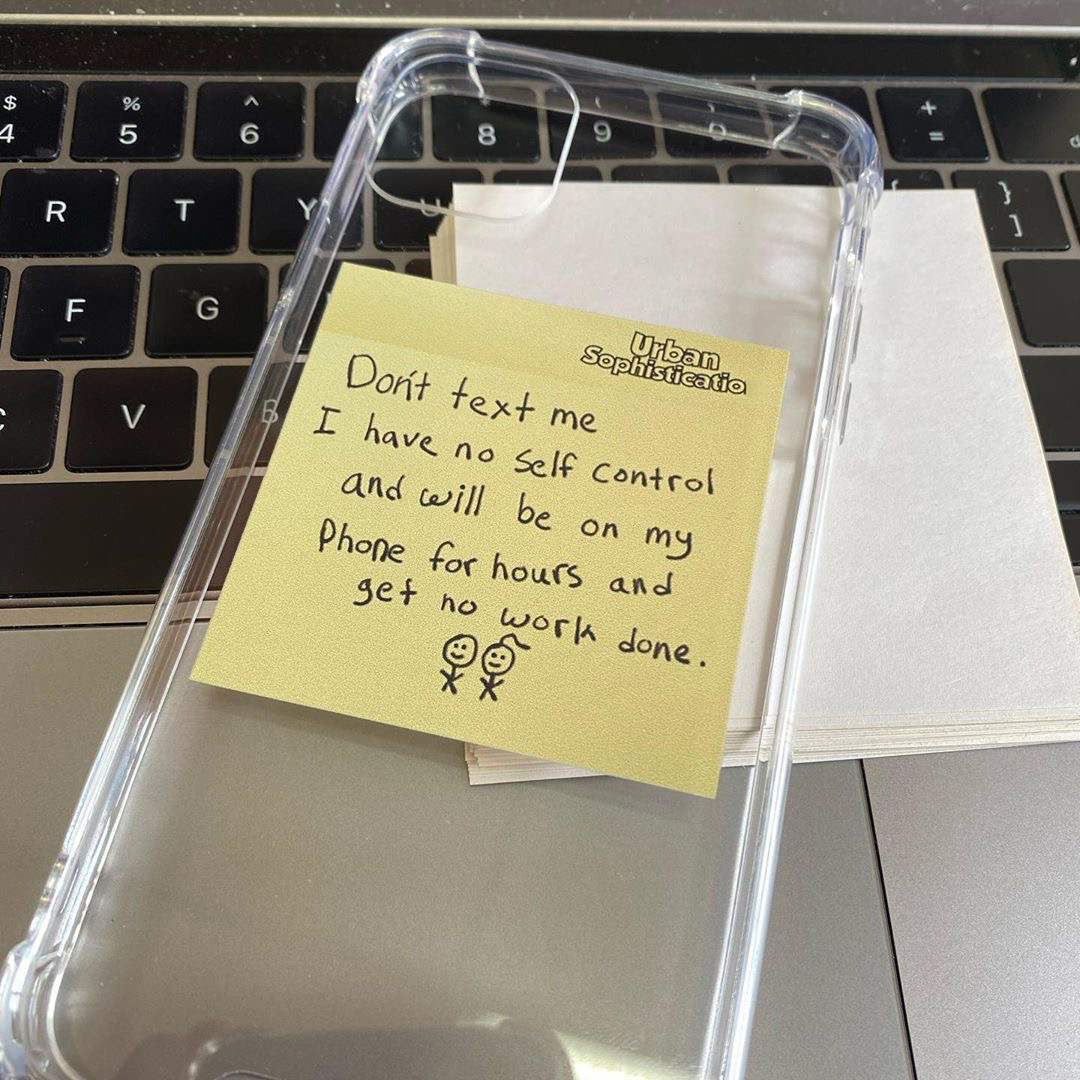 $
4
%
5
^
6
8
9
+
=
R
T
Y
U
}
]
F
G
V
B
Urban
Sophisticatio
Don't text me
I have no self control
and will be on my
Phone for hours and
get no work done.